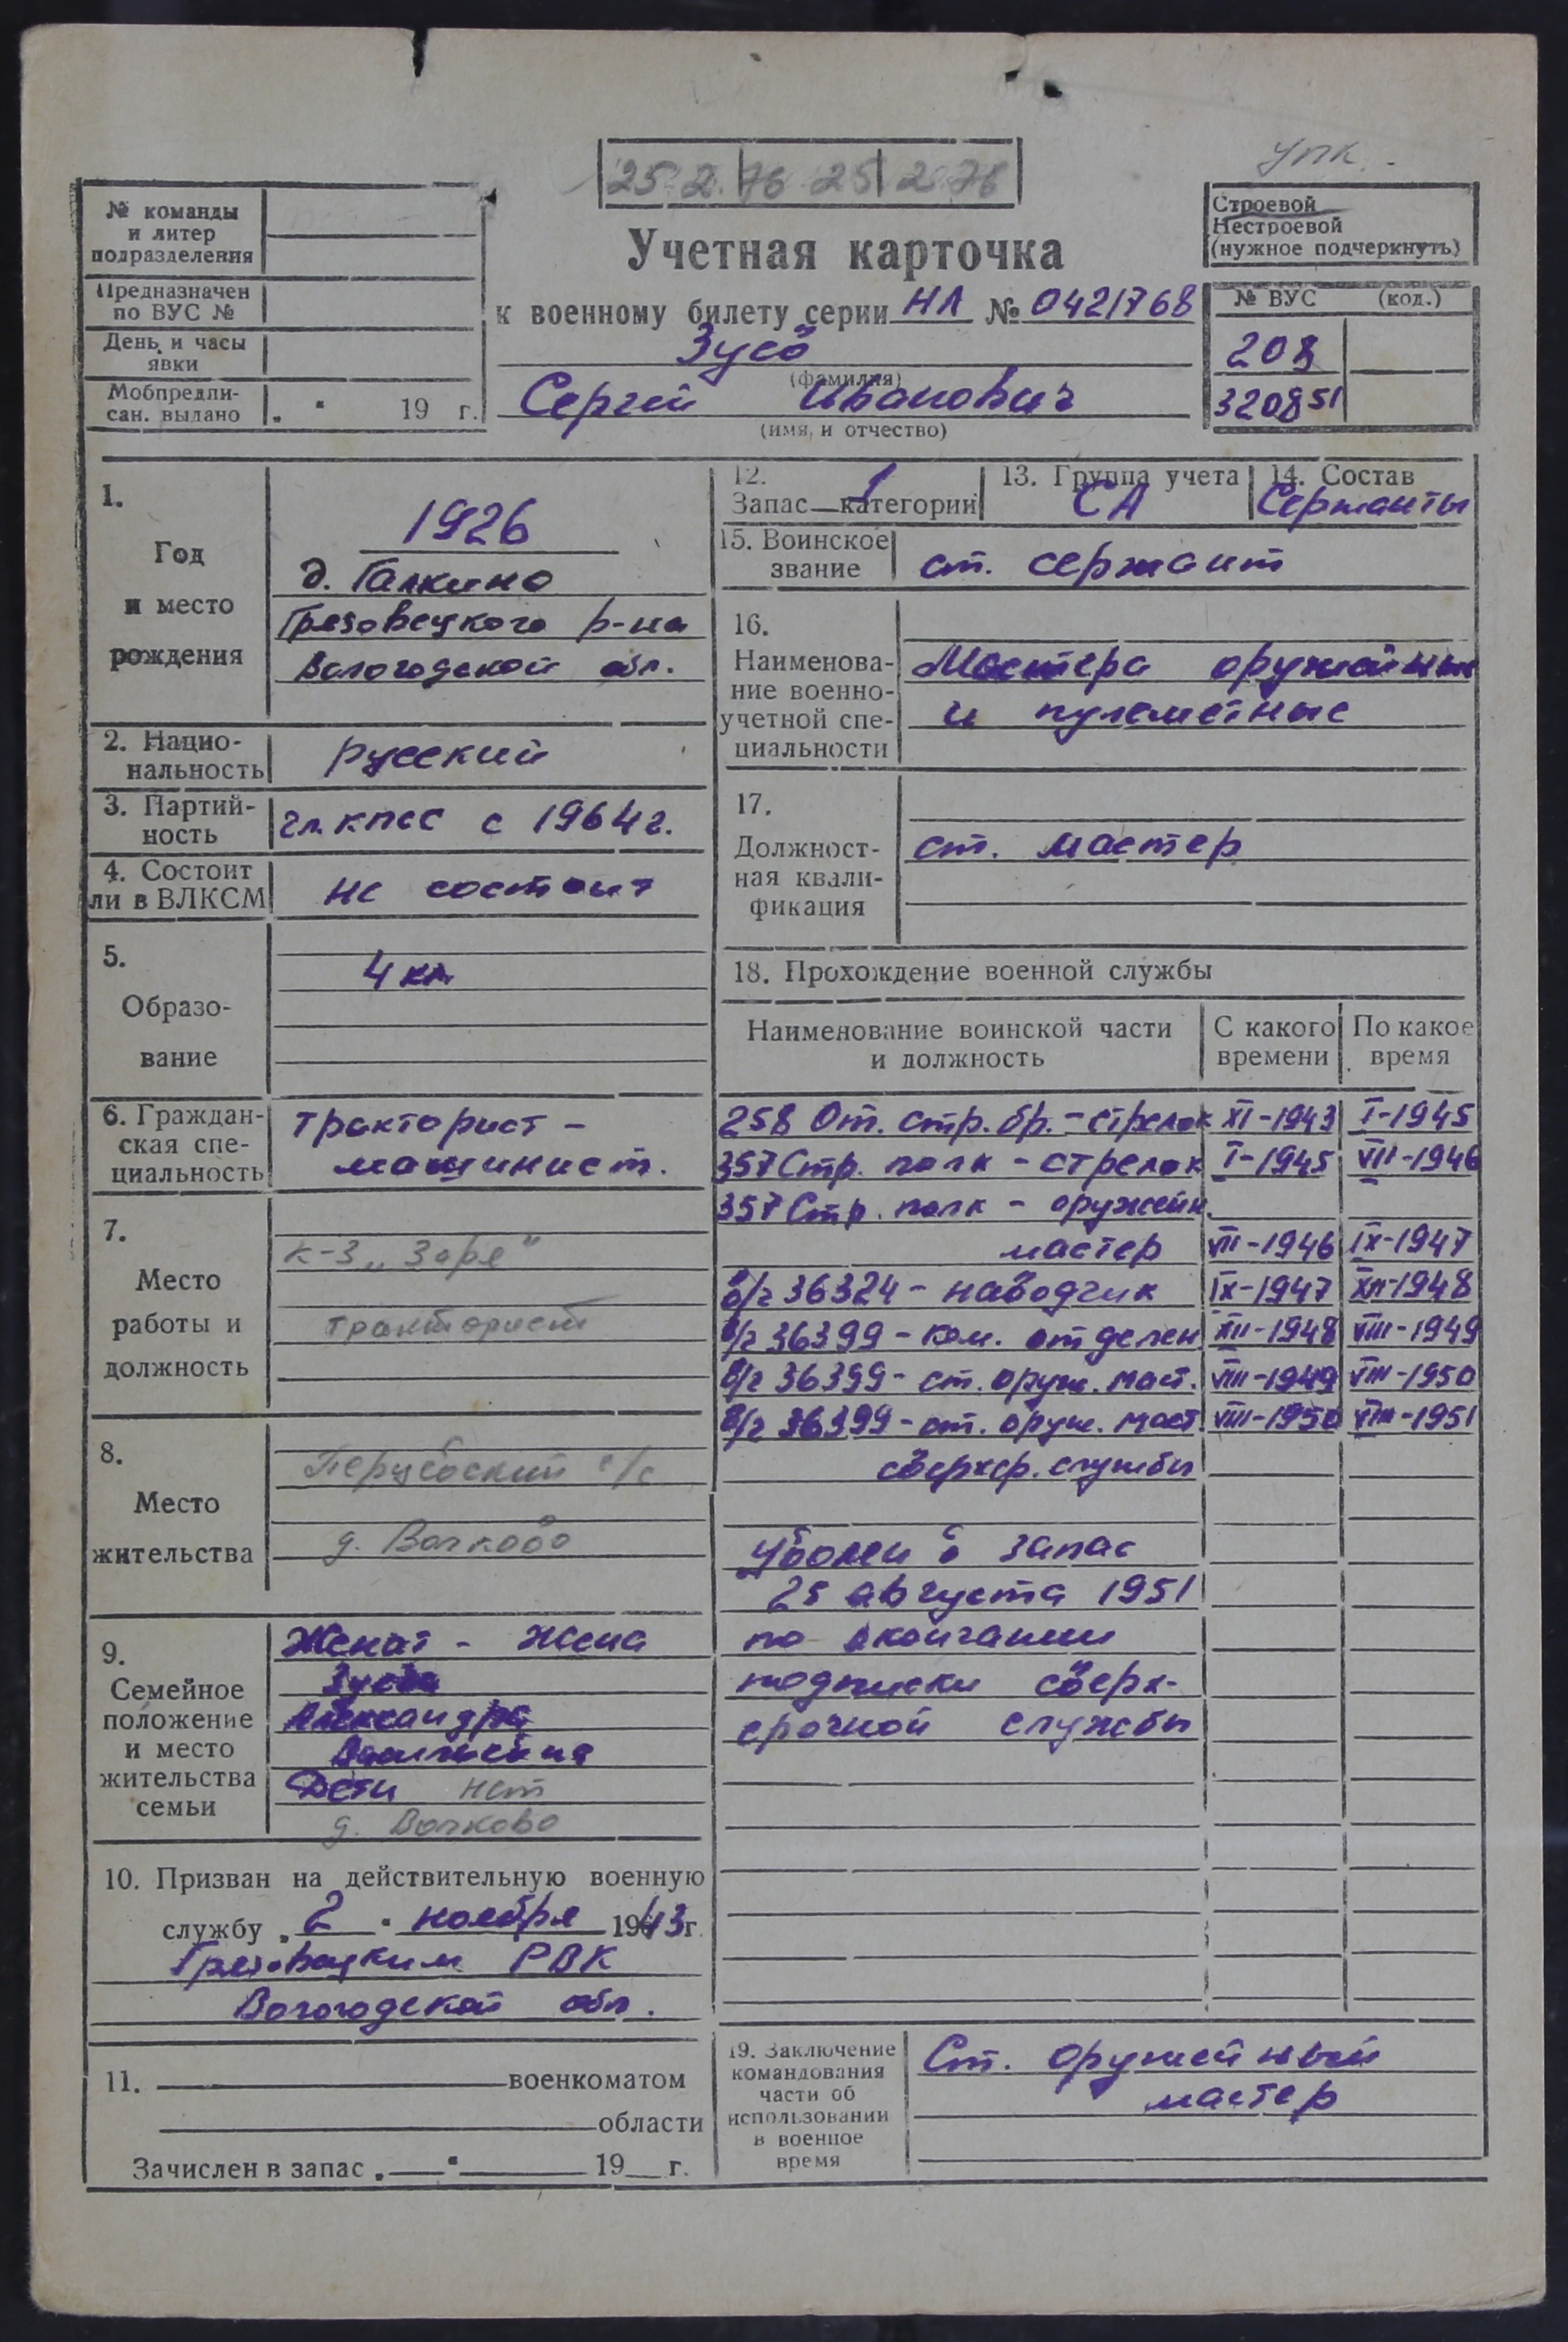 упк.
25 2 76 25 2 76
№ команды
и литер
подразделения
Предназначен
по ВУС №
День и часы
явки
Мобпредпи-
сан. выдано „ " 19 г.
Учетная карточка
к военному билету серии НЛ № 0421768
Зуев
(фамилия)
Сергей Иванович
(имя, и отчество)
Строевой
Нестроевой
(нужное подчеркнуть)
№ ВУС (код.)
208
320851
1.
Год
и место
рождения
1926
д. Галкино
Грязовецкого р-на
Вологодской обл.
2. Нацио-
нальность
русский
3. Партий-
ность
чл. КПСС с 1964 г.
4. Состоит
ли в ВЛКСМ
не состоит
5.
Образо-
вание
4 кл.
6. Граждан-
ская спе-
циальность
тракторист -
машинист.
7.
Место
работы и
должность
к-з „Заря"
тракторист
8.
Место
жительства
с/с
д. Волково
9.
Семейное
положение
и место
жительства
семьи
Женат - жена
Зуева
Александра
Дети нет
д. Волково
10. Призван на действительную военную
службу „2" ноября 1943 г.
Грязовецким РВК
Вологодской обл.
11. военкоматом
области
Зачислен в запас „ " 19 г.
12.
Запас 1 категории
13. Группа учета
СА
14. Состав
Сержанты
15. Воинское
звание
ст. сержант
16.
Наименова-
ние военно-
учетной спе-
циальности
Мастера оружейные
и пулеметные
17.
Должност-
ная квали-
фикация
ст. мастер
18. Прохождение военной службы
Наименование воинской части
и должность
С какого
времени
По какое
время
258 От. стр. бр. - стрелок XI-1943 I-1945
357 Стр. полк - стрелок I-1945 VII-1946
357 Стр. полк - оружейн.
мастер VII-1946 IX-1947
в/ч 36324 - наводчик IX-1947 XII-1948
в/ч 36399 - ком. отделен XII-1948 VIII-1949
в/ч 36399 - ст. оруж. маст. VIII-1949 VIII-1950
в/ч 36399 - ст. оруж. маст. VIII-1950 VIII-1951
сверхср. службы
Уволен в запас
25 августа 1951
по окончании
подписки сверх-
срочной службы
19. Заключение
командования
части об
использовании
в военное
время
Ст. оружейный
мастер